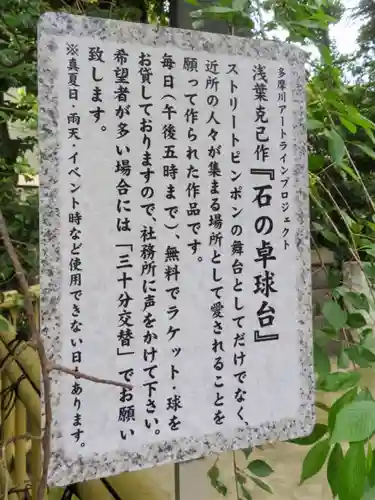 多摩川アートラインプロジェクト
浅葉克己作『石の卓球台』
ストリートピンポンの舞台としてだけでなく、
近所の人々が集まる場所として愛されることを
願って作られた作品です。
毎日（午後五時まで）、無料でラケット・球を
お貸しておりますので、社務所に声をかけて下さい。
希望者が多い場合には「三十分交替」でお願い
致します。
※真夏日・雨天・イベント時など使用できない日もあります。